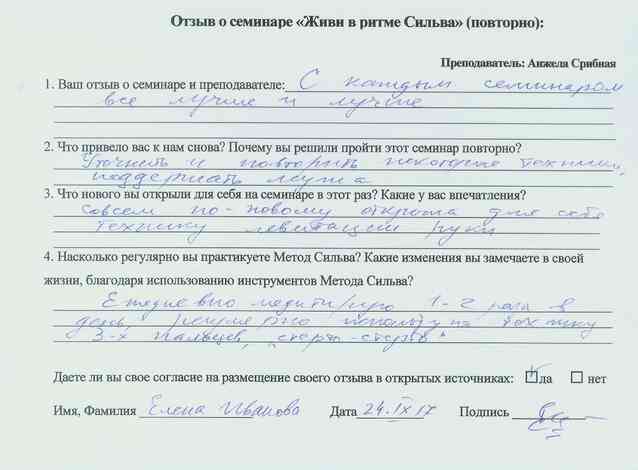 Отзыв о семинаре «Живи в ритме Сильва» (повторно):
Преподаватель: Анжела Срибная
1. Ваш отзыв о семинаре и преподавателе: С каждым семинаром
все лучше и лучше
2. Что привело вас к нам снова? Почему вы решили пройти этот семинар повторно?
Уточнить и повторить некоторые техники,
поддержать мужа
3. Что нового вы открыли для себя на семинаре в этот раз? Какие у вас впечатления?
Совсем по-новому открыта для себя
технику левитации руки
4. Насколько регулярно вы практикуете Метод Сильва? Какие изменения вы замечаете в своей
жизни, благодаря использованию инструментов Метода Сильва?
Ежедневно медитирую 1-2 раза в
день, регулярно использую технику
3-х пальцев,
Даете ли вы свое согласие на размещение своего отзыва в открытых источниках: да нет
Имя, Фамилия Елена Иванова Дата 24.IX 17 Подпись